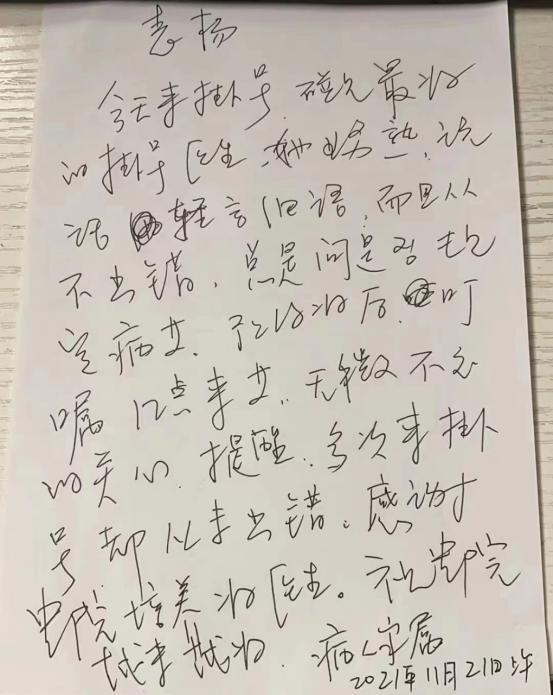 表扬
今天来挂号,碰见最好
的挂号医生,她娴熟,说
话轻言细语,而且从
不出错,总是问是否就
定病女,预约好后,叮
嘱几点来女,无微不至
的关心,提醒,多次来挂
号却从未出错,感谢
贵院培养好医生。祝贵院
越来越好. 病人家属
2021年11月21日上午